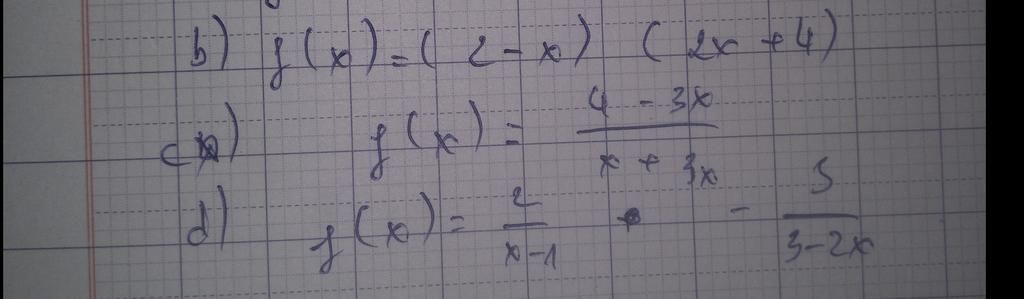 b) f(x) = (2 - x) (2x + 4)
c) f(x) = \frac{4 - 3x}{x + 3x}
d) f(x) = \frac{2}{x - 1} - \frac{5}{3 - 2x}